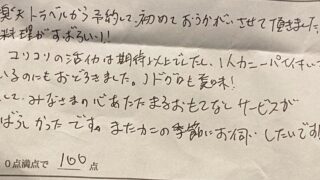 楽天トラベルから予約して、初めておうかがいさせて頂きました。
料理がすばらしい!
コリコリの活イカは期待以上でしたし、1人カニ一パイ付いて
いるのにもおどろきました。ノドグロも美味!
して、みなさまの心あたたまるおもてなし サービスが
ばらしかったです。またカニの季節にお伺いしたいです!
0点満点で 100 点